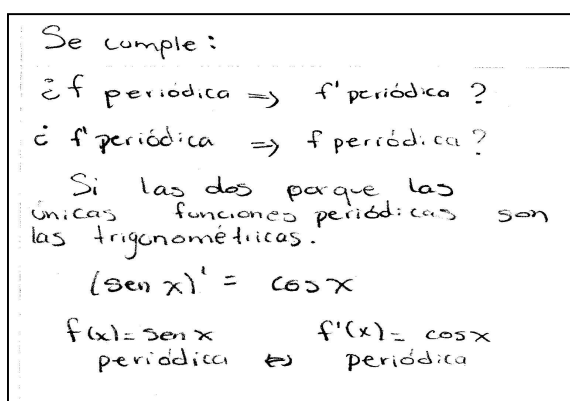 Se cumple:
¿f periódica => f' periódica?
¿f' periódica => f periódica?
Si las dos porque las
únicas funciones periódicas son
las trigonométricas.
(sen x)' = cos x
f(x) = sen x f'(x) = cos x
periódica <=> periódica